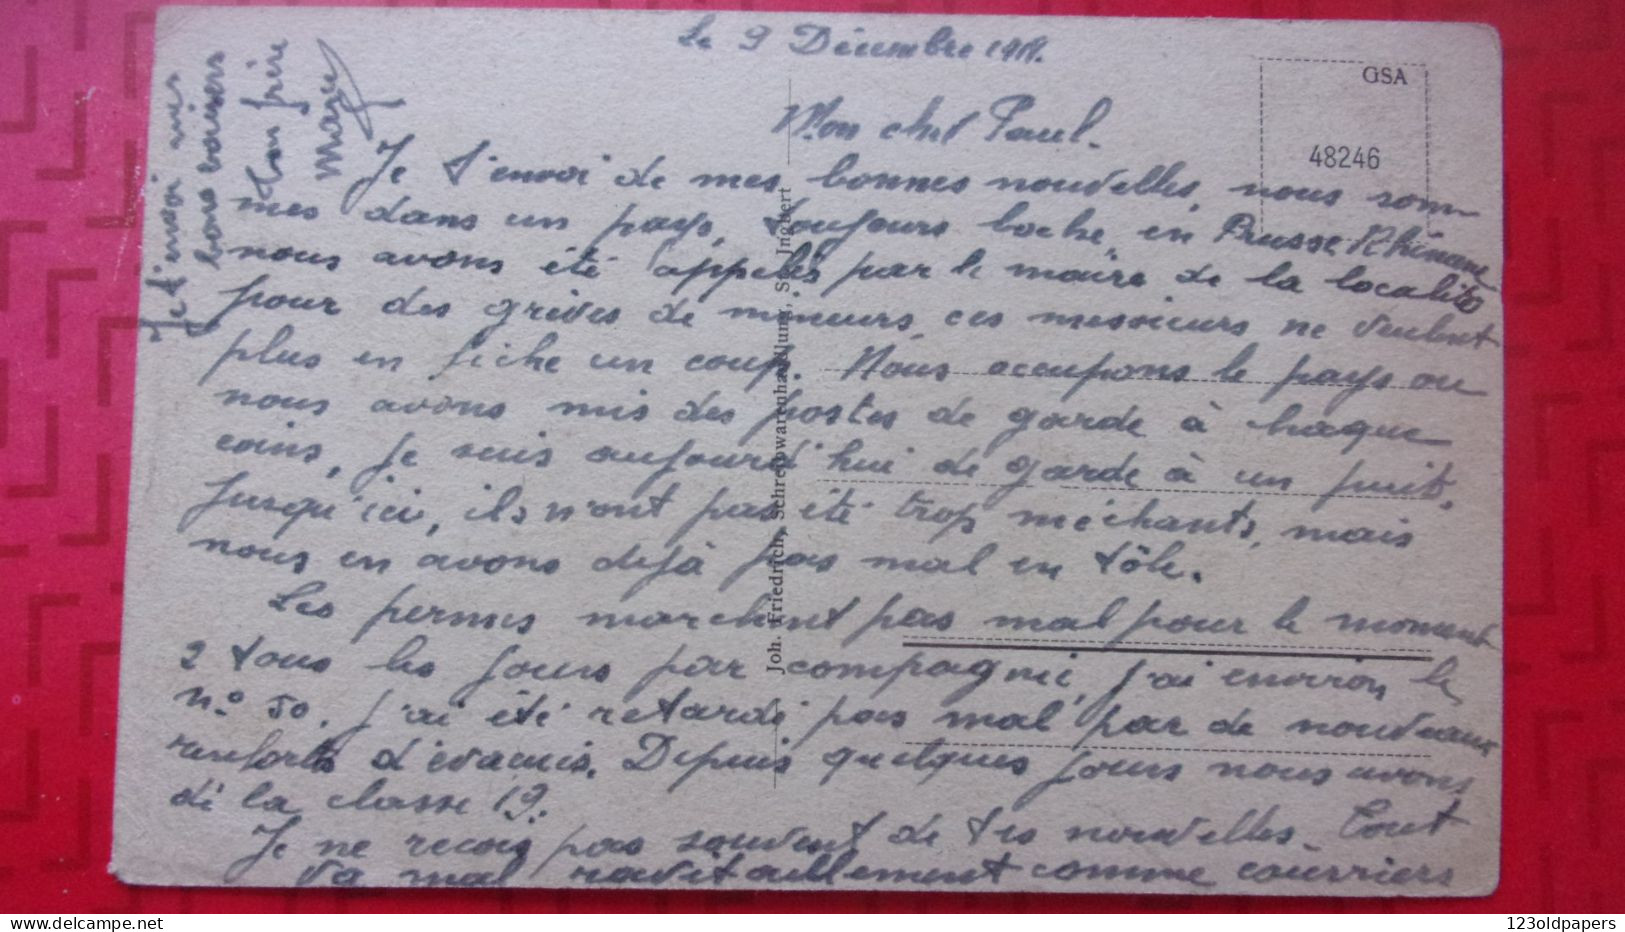 Le 9 Décembre 191
GSA
48246
Mon cher Paul.
Je t'envoi de mes bonnes nouvelles, nous som
mes dans un pays, toujours boche, en Prusse Rhénane
nous avons été appelés par le maire de la localité
pour des grèves de mineurs, ces messieurs ne veulent
plus en fiche un coup. Nous occupons le pays ou
nous avons mis des postes de garde à chaque
coins, je suis aujourd'hui de garde à un puit.
Jusqu'ici, ils n'ont pas été trop méchants, mais
nous en avons dejà pas mal en tôle.
Les permes marchent pas mal pour le moment
2 tous les jours par compagnie, j'ai environ le
n° 50. J'ai été retardé pas mal par de nouveaux
renforts d'évacués. Depuis quelques jours nous avons
dé la classe 19.
Je ne recois pas souvent de tes nouvelles. Tout
va mal ravitaillement comme courriers
Je t'envoi mes
bons baisers
Ton frère
Joh. Friedrich, Schreibwarenhandlung, St. Ingbert
123oldpapers